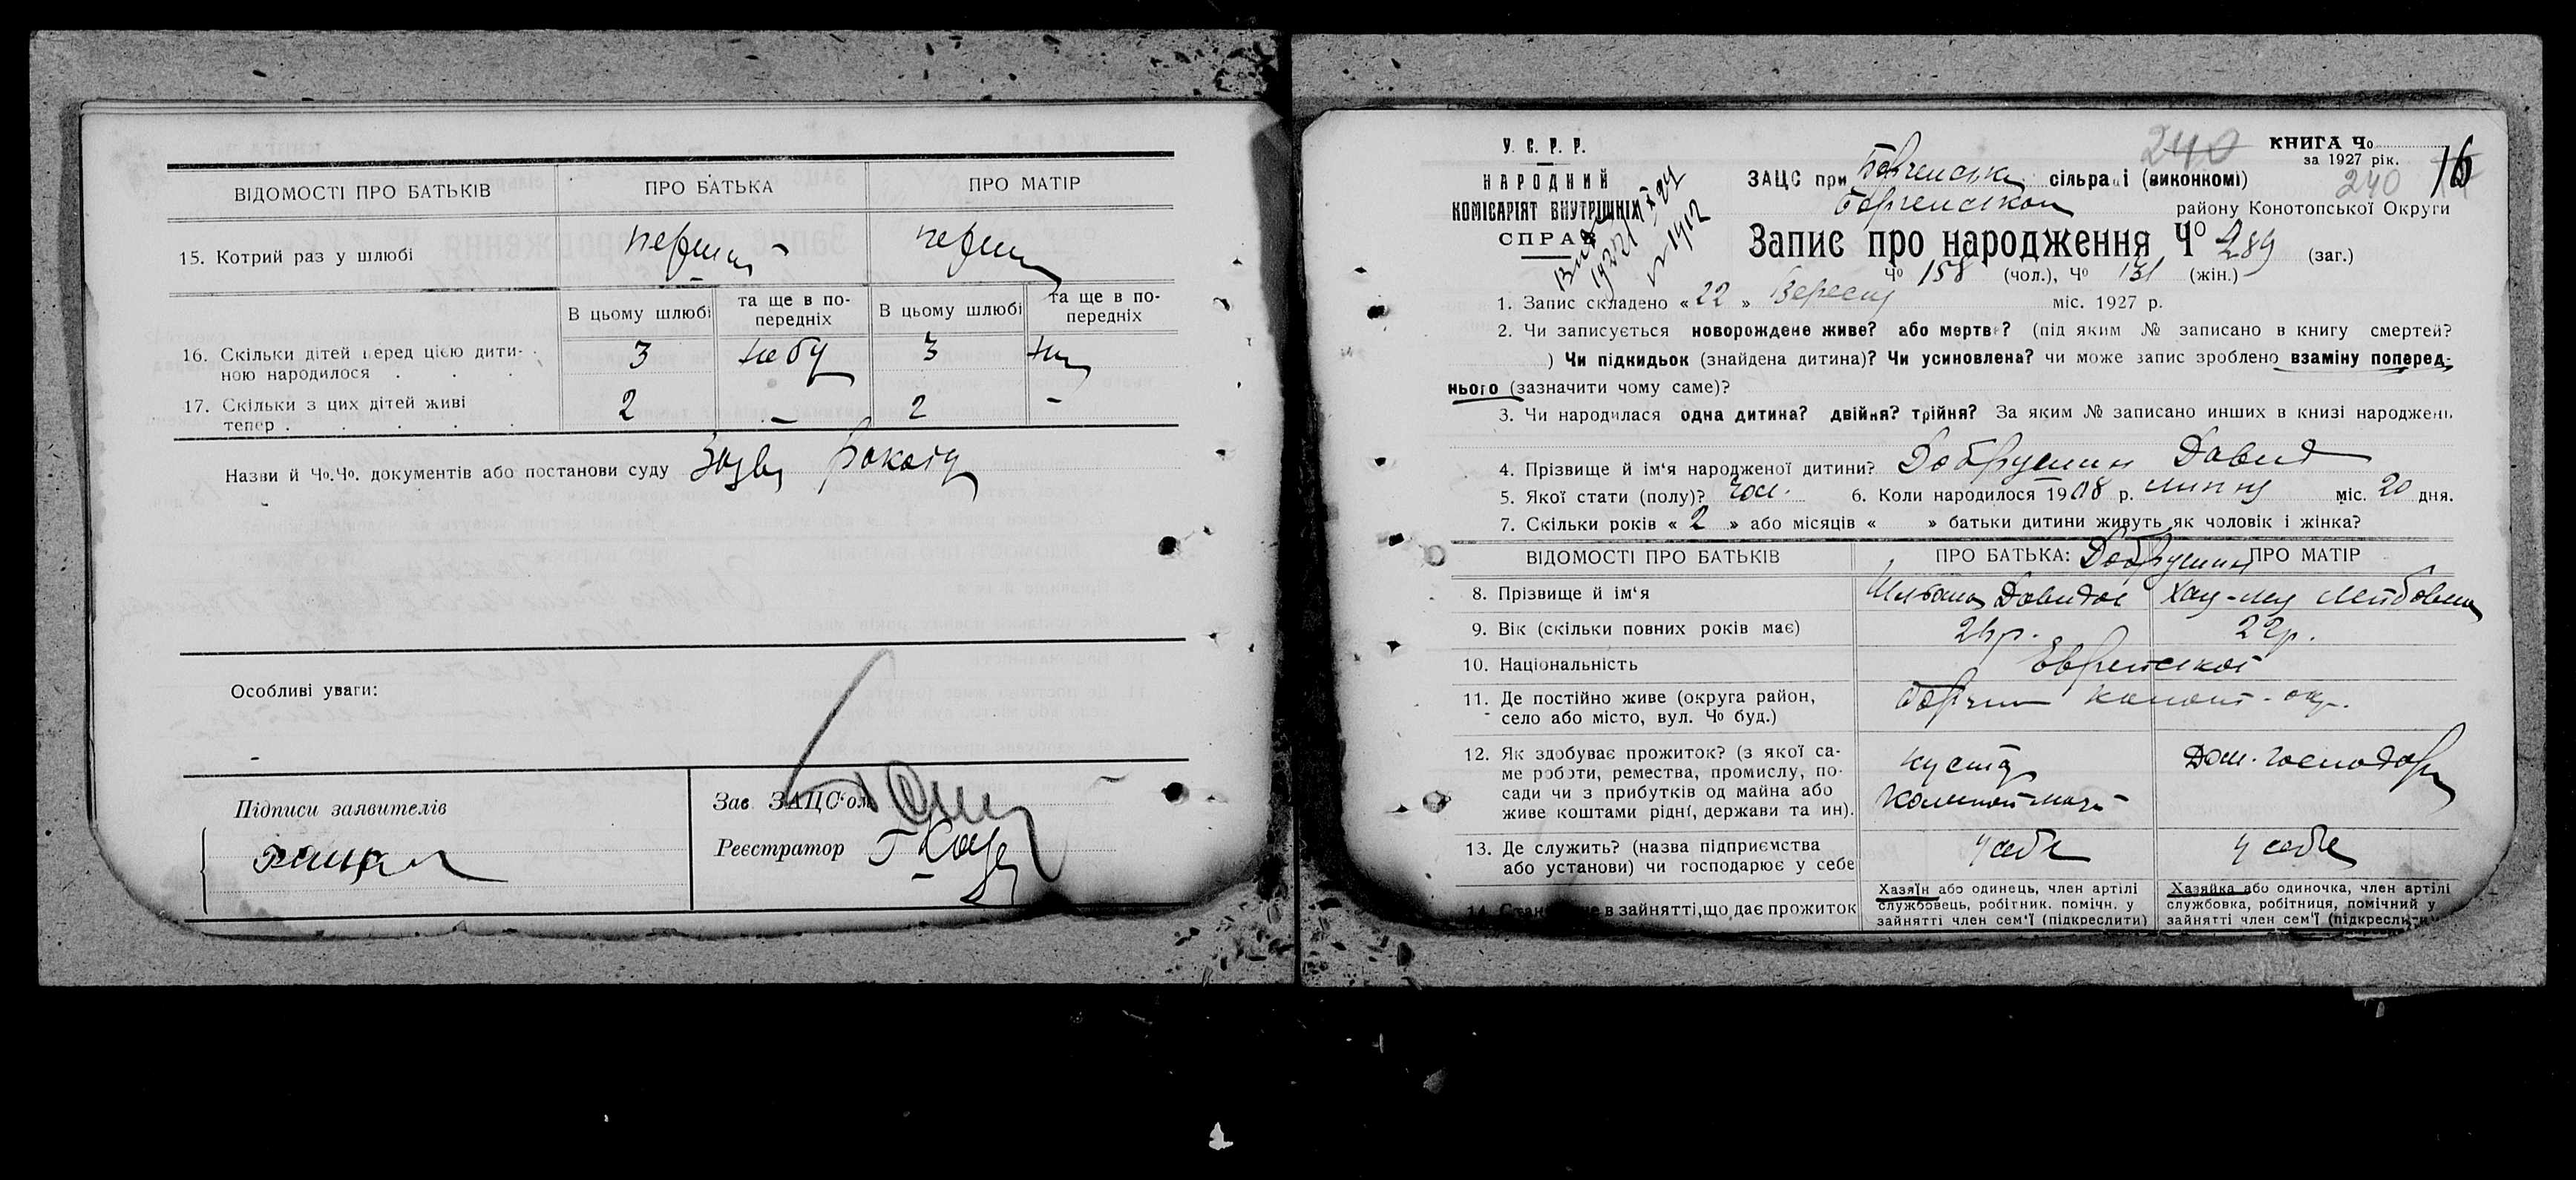 ВІДОМОСТІ ПРО БАТЬКІВ ПРО БАТЬКА ПРО МАТІР
15. Котрий раз у шлюбі перший перш
В цьому шлюбі та ще в по- В цьому шлюбі та ще в по-
передніх передніх
16. Скільки дітей перед цією дити- 3 3
ною народилося . . .
17. Скільки з цих дітей живі 2 — 2 -
тепер . . . . .
Назви й Чо.Чо. документів або постанови суду
Особливі уваги:
Підписи заявителів
Зав. ЗАЦС'ом
Реєстратор
У. С. Р. Р.
НАРОДНИЙ
КОМІСАРІЯТ ВНУТРІШНІХ
СПРАВ
240 КНИГА Чо
за 1927 рік.
240 16
ЗАЦС при Борзенськ сільраді (виконкомі)
Борзенської району Конотопської Округи
Запис про народження Чо 289 (заг.)
Чо 158 (чол.), Чо 131 (жін.)
1. Запис складено «22» Вересня міс. 1927 р.
2. Чи записується новорождене живе? або мертве? (під яким № записано в книгу смертей?
) Чи підкидьок (знайдена дитина)? Чи усиновлена? чи може запис зроблено взаміну поперед-
нього (зазначити чому саме)?
3. Чи народилася одна дитина? двійня? трійня? За яким № записано инших в книзі народжень
4. Прізвище й ім'я народженої дитини? Добрушин Давид
5. Якої стати (полу)? чол. 6. Коли народилося 1908 р. липня міс. 20 дня.
7. Скільки років «2» або місяців « » батьки дитини живуть як чоловік і жінка?
ВІДОМОСТІ ПРО БАТЬКІВ ПРО БАТЬКА: Добрушин ПРО МАТІР
8. Прізвище й ім'я Давидов Хая-
9. Вік (скільки повних років має) 22р.
10. Національність Еврейської
11. Де постійно живе (округа район, Борзна Конот. окр.
село або місто, вул. Чо буд.)
12. Як здобуває прожиток? (з якої са- кустар Дом. господар
ме роботи, ремества, промислу, по-
сади чи з прибутків од майна або
живе коштами рідні, держави та ин).
13. Де служить? (назва підприємства у себе у себе
або установи) чи господарює у себе
14. Становище в зайнятті, що дає прожиток
Хазяїн або одинець, член артілі
службовець, робітник. помічн. у
зайнятті член сем'ї (підкреслити)
Хазяйка або одиночка, член артілі
службовка, робітниця, помічний у
зайнятті член сем'ї (підкреслити)